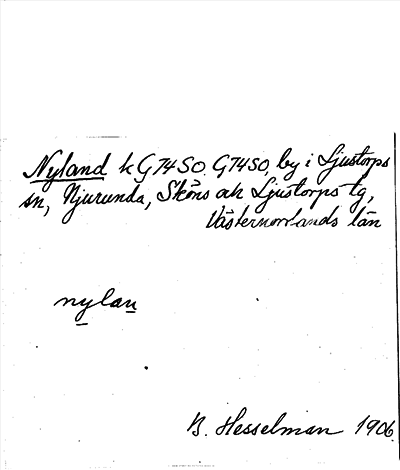 Nyland k G74SO G74SO, by i Ljustorps
sn, Njurunda, Sköns och Ljustorps tg,
Västernorrlands län
nylan
B. Hesselman 1906.